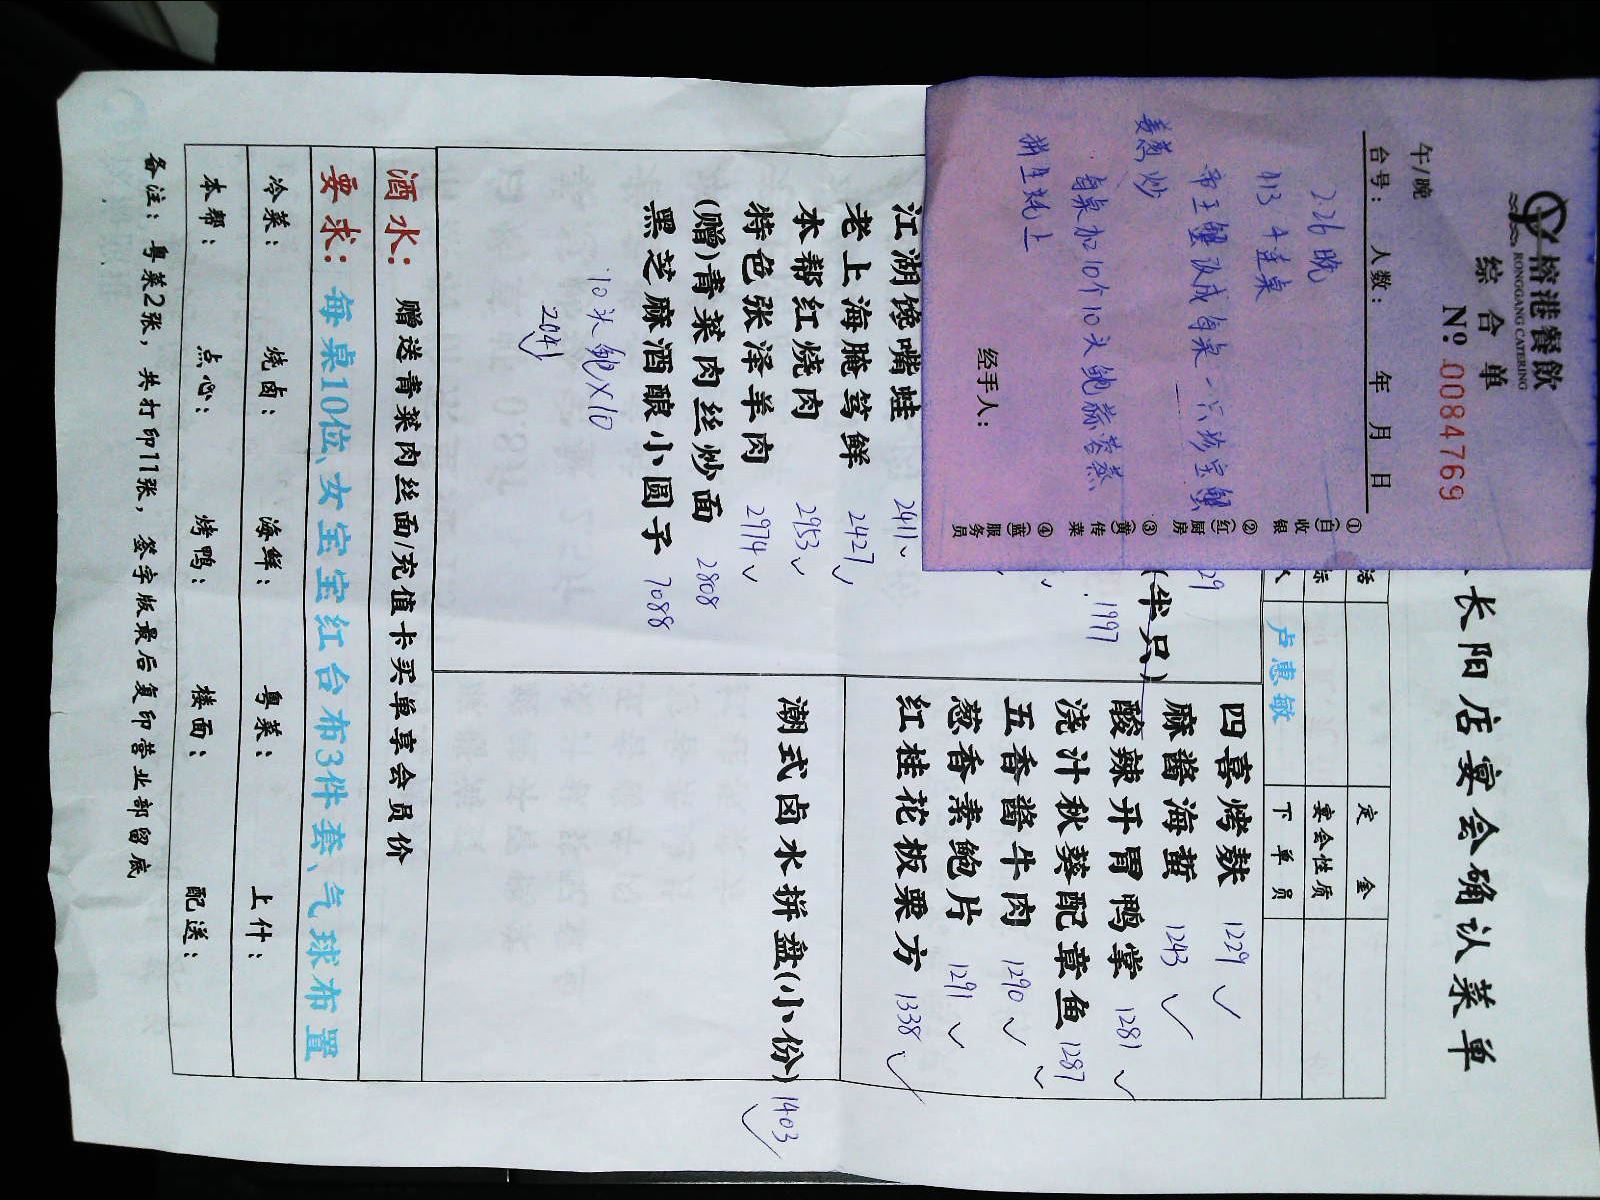 榕港餐飲
RONGGANG CATERING
综合单
No. 0084769
午/晚
台号： 人数： 年 月 日
2.26晚
413 4连桌
帝王蟹改成每桌一只珍宝蟹
姜葱炒
每桌加10个10头鲍蒜蓉蒸
经手人：
①(白)收银
②(红)厨房
③(黄)传菜
④(蓝)服务员
长阳店宴会确认菜单
定金
宴会性质
卢惠敏
下单员
29
(半只)
1997
江湖馋嘴蛙 2411
老上海腌笃鲜 2427
本帮红烧肉 2953
特色张泽羊肉 2974
(赠)青菜肉丝炒面 2808
黑芝麻酒酿小圆子 7088
10头鲍×10
2041
四喜烤麸 1229
麻酱海蜇 1243
酸辣开胃鸭掌 1281
浇汁秋葵配章鱼 1287
五香酱牛肉 1290
葱香素鲍片 1291
红桂花板栗方 1338
潮式卤水拼盘(小份) 1403
酒水： 赠送青菜肉丝面/充值卡买单享会员价
要求：每桌10位、女宝宝红台布3件套、气球布置
冷菜： 烧卤： 海鲜： 粤菜： 上什：
本帮： 点心： 烤鸭： 楼面： 配送：
备注：粤菜2张，共打印11张，签字版最后复印营业部留底